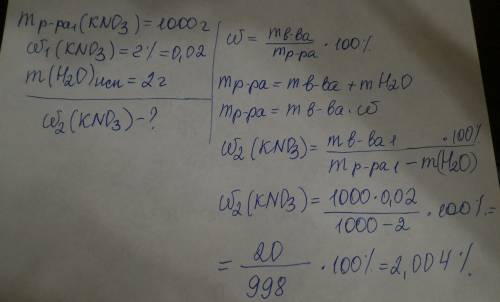 mр-ра1 (KNO3) = 1000 г
ω1 (KNO3) = 2% = 0,02
m (H2O) исп = 2 г
ω2 (KNO3) - ?
ω = mв-ва / mр-ра · 100%
mр-ра = mв-ва + mH2O
mр-ра = mв-ва · ω
ω2 (KNO3) = mв-ва1 · 100% / mр-ра1 - m(H2O)
ω2 (KNO3) = 1000·0,02 / 1000-2 · 100% =
= 20 / 998 · 100% = 2,004%.